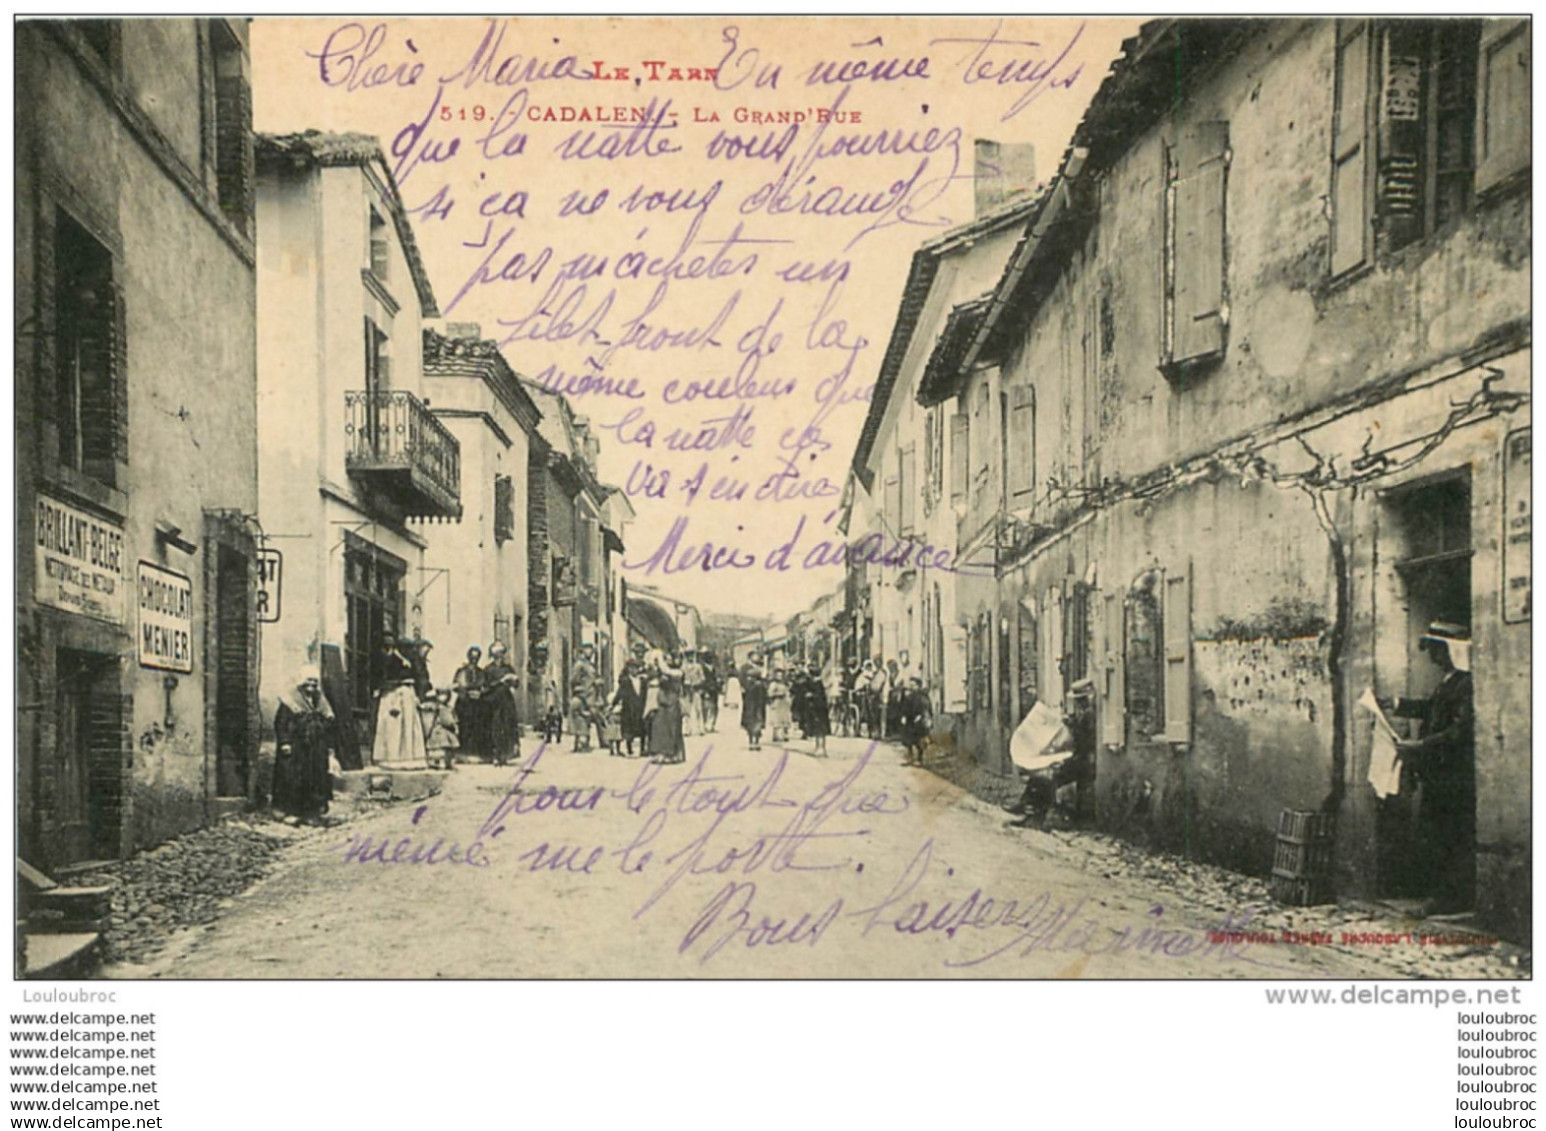 Chère Maria En même temps
LE TARN
519. - CADALEN. - LA GRAND'RUE
que la natte vous pourriez
si ça ne vous dérange
pas m'achetes un
filet front de la
même couleur que
la natte ça
va sin dire
Merci d'avance
BRILLANT-BELGE
NETTOYAGE DES MÉTAUX
CHOCOLAT
MENIER
pour le tout que
mémé me le porte.
Bons baisers Marinette
LABOUCHE FRÈRES TOULOUSE
Louloubroc
www.delcampe.net
www.delcampe.net
www.delcampe.net
www.delcampe.net
www.delcampe.net
www.delcampe.net
www.delcampe.net
www.delcampe.net
louloubroc
louloubroc
louloubroc
louloubroc
louloubroc
louloubroc
louloubroc